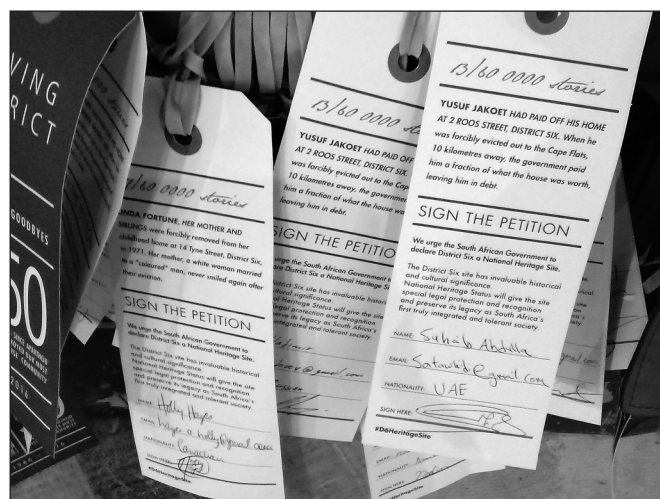 VING
RICT
GOODBYES
50
2016
7/60 0000 stories
LINDA FORTUNE, HER MOTHER AND
SIBLINGS were forcibly removed from her
childhood home at 14 Tyne Street, District Six,
in 1971. Her mother, a white woman married
to a "coloured" man, never smiled again after
their eviction.
SIGN THE PETITION
We urge the South African Government to
declare District Six a National Heritage Site.
The District Six site has invaluable historical
and cultural significance.
National Heritage Status will give the site
special legal protection and recognition
and preserve its legacy as South Africa's
first truly integrated and tolerant society.
NAME: Holly Hayes
EMAIL:
NATIONALITY: Canadian
SIGN HERE:
#D6HeritageSite
13/60 0000 sto
YUSUF JAKOET HAD PAID OFF
AT 2 ROOS STREET, DISTRICT SIX.
was forcibly evicted out to the Cape
10 kilometres away, the governmen
him a fraction of what the house wa
leaving him in debt.
SIGN THE PETITIO
urge the South African Government to
declare District Six a National Heritage
District Six site has invaluable histori
cultural significance.
National Heritage Status will give the
special legal protection and recognition
preserve its legacy as South Africa
integrated and tolerant society.
@gmail.com
13/60 0000 stories
YUSUF JAKOET HAD PAID OFF HIS HOME
AT 2 ROOS STREET, DISTRICT SIX. When he
was forcibly evicted out to the Cape Flats,
10 kilometres away, the government paid
him a fraction of what the house was worth,
leaving him in debt.
SIGN THE PETITION
We urge the South African Government to
declare District Six a National Heritage Site.
The District Six site has invaluable historical
and cultural significance.
National Heritage Status will give the site
special legal protection and recognition
and preserve its legacy as South Africa's
first truly integrated and tolerant society.
NAME: Abdulla
EMAIL: @gmail.com
NATIONALITY: UAE
SIGN HERE:
#D6HeritageSite